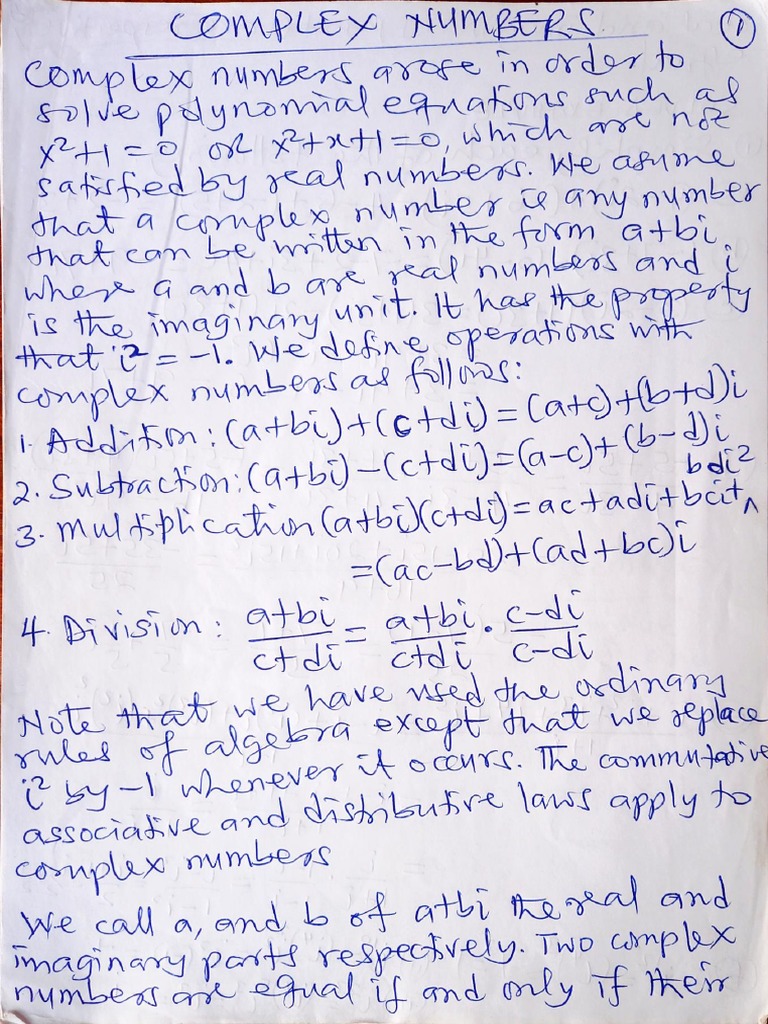 COMPLEX NUMBERS 1
Complex numbers arose in order to
solve polynomial equations such as
x²+1=0 or x²+x+1=0, which are not
satisfied by real numbers. We asume
that a complex number is any number
that can be written in the form a+bi,
where a and b are real numbers and i
is the imaginary unit. It has the property
that i² = -1. We define operations with
complex numbers as follows:
1. Addition: (a+bi)+(c+di)=(a+c)+(b+d)i
2. Subtraction: (a+bi)-(c+di)=(a-c)+(b-d)i
3. Multiplication (a+bi)(c+di)=ac+adi+bci+^bdi²
=(ac-bd)+(ad+bc)i
4. Division: (a+bi)/(c+di) = (a+bi)/(c+di) · (c-di)/(c-di)
Note that we have used the ordinary
rules of algebra except that we replace
i² by -1 whenever it occurs. The commutative
associative and distributive laws apply to
complex numbers
We call a, and b of a+bi the real and
imaginary parts respectively. Two complex
numbers are equal if and only if their